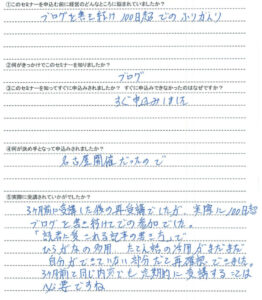 ①このセミナーを申込む前に経営のどんなところに悩まれていましたか？
ブログを書き続け100日超でのふりかえり
②何がきっかけでこのセミナーを知りましたか？
ブログ
③このセミナーを知ってすぐに申込みされましたか？ すぐに申込みできなかったのはなぜですか？
すぐ申込みしました
④何が決め手となって申込みされましたか？
名古屋開催だったので
⑤実際に受講されていかがでしたか？
3ヶ月前に受講した後の再受講でしたが、実際に100日超
ブログを書き続けての参加でした。
「読者に愛される記事の書き方」で
ひらがなの効用 たとえ話の活用がまだまだ
自分ができていない部分だと再確認できました。
3ヶ月前と同じ内容でも定期的に受講することは
必要ですね